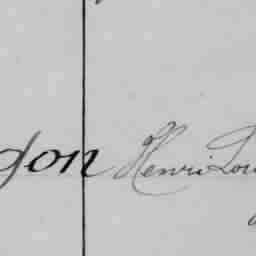 don Henri Lou